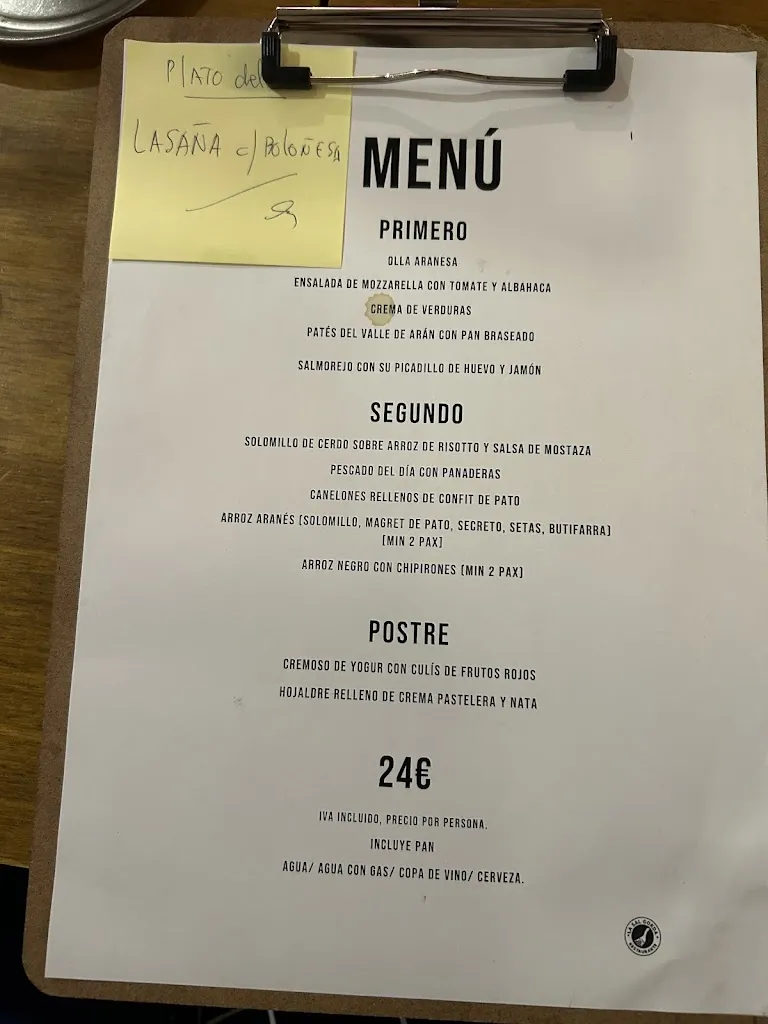 PLATO del
LASAÑA c/ BOLOÑESA
MENÚ
PRIMERO
OLLA ARANESA
ENSALADA DE MOZZARELLA CON TOMATE Y ALBAHACA
CREMA DE VERDURAS
PATÉS DEL VALLE DE ARÁN CON PAN BRASEADO
SALMOREJO CON SU PICADILLO DE HUEVO Y JAMÓN
SEGUNDO
SOLOMILLO DE CERDO SOBRE ARROZ DE RISOTTO Y SALSA DE MOSTAZA
PESCADO DEL DÍA CON PANADERAS
CANELONES RELLENOS DE CONFIT DE PATO
ARROZ ARANÉS (SOLOMILLO, MAGRET DE PATO, SECRETO, SETAS, BUTIFARRA)
(MIN 2 PAX)
ARROZ NEGRO CON CHIPIRONES (MIN 2 PAX)
POSTRE
CREMOSO DE YOGUR CON CULÍS DE FRUTOS ROJOS
HOJALDRE RELLENO DE CREMA PASTELERA Y NATA
24€
IVA INCLUIDO, PRECIO POR PERSONA.
INCLUYE PAN
AGUA/ AGUA CON GAS/ COPA DE VINO/ CERVEZA.
LA SAL GORDA
RESTAURANTE